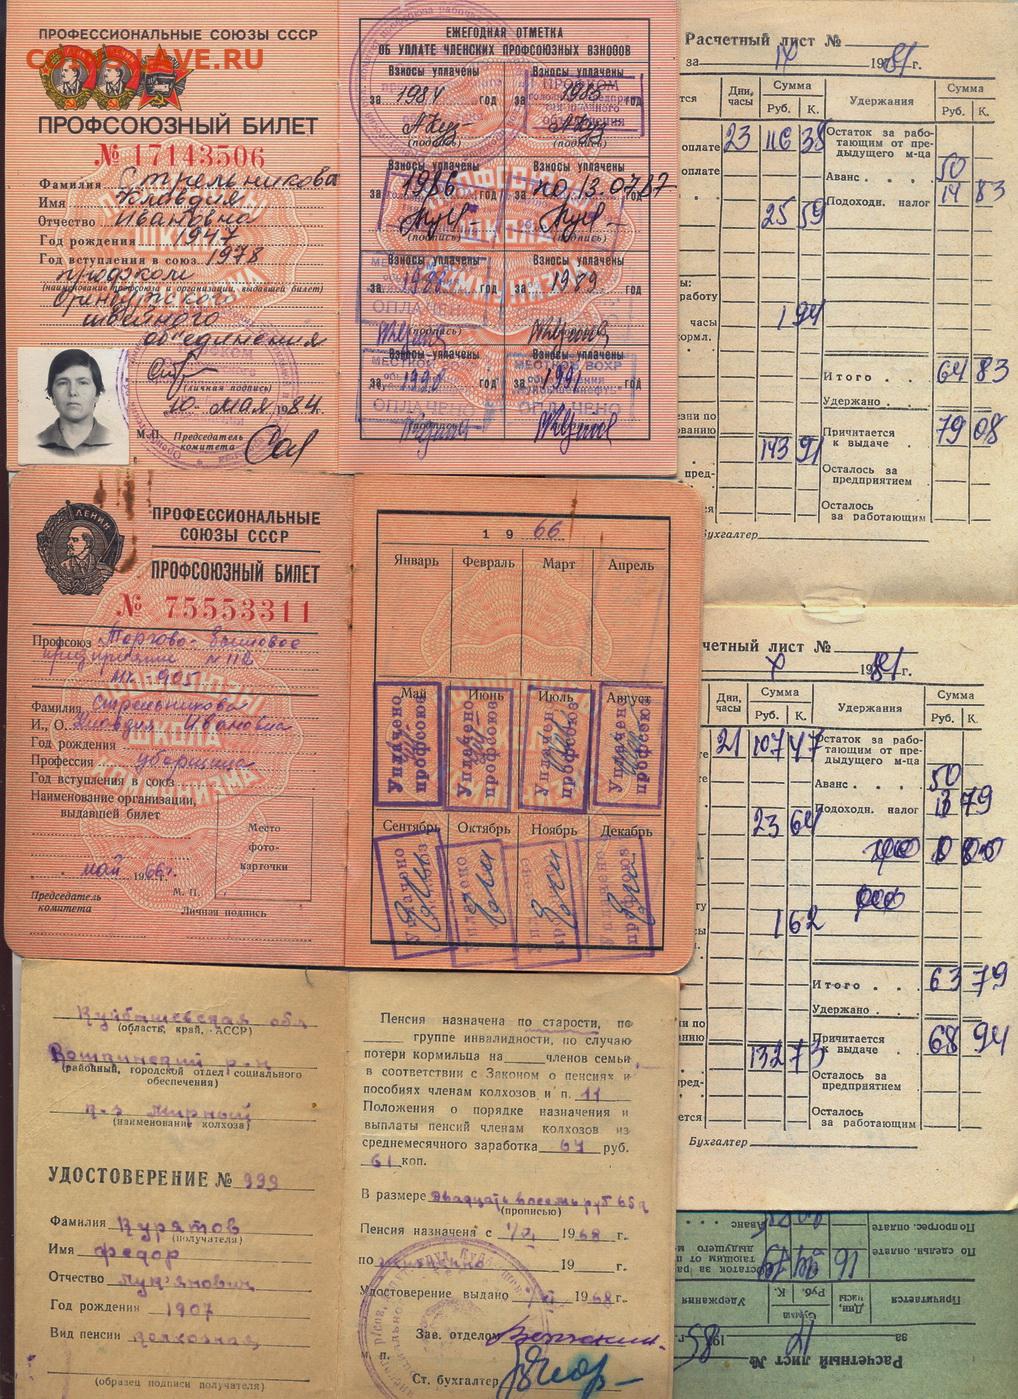 COINSSLAVE.RU
ПРОФЕССИОНАЛЬНЫЕ СОЮЗЫ СССР
ПРОФСОЮЗНЫЙ БИЛЕТ
№ 17143506
Фамилия Стрельникова
Имя Клавдия
Отчество Ивановна
Год рождения 1947
Год вступления в союз 1978
профком
(наименование профсоюза и организации, выдавшей билет)
Оренбургского
швейного
объединения
(личная подпись)
10 мая 1984.
М.П. Председатель
комитета
ЕЖЕГОДНАЯ ОТМЕТКА
ОБ УПЛАТЕ ЧЛЕНСКИХ ПРОФСОЮЗНЫХ ВЗНОСОВ
Взносы уплачены Взносы уплачены
за 1984 год за 1985 год
(подпись) (подпись)
Взносы уплачены Взносы уплачены
за 1986 год по 13.07.87
(подпись) (подпись)
Взносы уплачены Взносы уплачены
за 1988 год за 1989 год
ОПЛАЧЕНО
(подпись) (подпись)
Взносы уплачены Взносы уплачены
за 1990 год за 1991 год
ОПЛАЧЕНО ОПЛАЧЕНО
ЛЕНИН
ПРОФЕССИОНАЛЬНЫЕ
СОЮЗЫ СССР
ПРОФСОЮЗНЫЙ БИЛЕТ
№ 75553311
Профсоюз Торгово-бытовое
предприятие №112
Фамилия Стрельникова
И., О. Клавдия Ивановна
Год рождения
Профессия уборщица
Год вступления в союз
Наименование организации,
выдавшей билет
Место
фото-
карточки
май 1966г.
М. П.
Председатель
комитета
Личная подпись
1966
Январь Февраль Март Апрель
Май Июнь Июль Август
Уплачено профсоюз Уплачено профсоюз Уплачено профсоюз Уплачено профсоюз
Сентябрь Октябрь Ноябрь Декабрь
Уплачено
Куйбышевская обл
(область, край, АССР)
р-н
(районный, городской отдел социального
обеспечения)
к-з мирный
(наименование колхоза)
УДОСТОВЕРЕНИЕ № 999
Фамилия Курятов
(получателя)
Имя Федор
Отчество Лукьянович
Год рождения 1907
Вид пенсии колхозная
(образец подписи получателя)
Пенсия назначена по старости, по
группе инвалидности, по случаю
потери кормильца на членов семьи
в соответствии с Законом о пенсиях и
пособиях членам колхозов и п. 11
Положения о порядке назначения и
выплаты пенсий членам колхозов из
среднемесячного заработка 64 руб.
61 коп.
В размере двадцать восемь руб 65к
(прописью)
Пенсия назначена с 1968 г.
по 19 г.
Удостоверение выдано 1968 г.
Зав. отделом
м. п.
Ст. бухгалтер
Расчетный лист №
за IX 1981г.
Дни, часы Сумма Руб. К. Удержания Сумма Руб. К.
оплате 23 116 38 Остаток за рабо-
тающим от пре-
дыдущего м-ца
оплате Аванс 50
Подоходн. налог 14 83
25 59
работу
часы 1 94
Итого 64 83
Удержано
Причитается
к выдаче 79 08
143 91
Осталось за
предприятием
Осталось
за работающим
Бухгалтер
четный лист №
X 1981г.
Дни, часы Сумма Руб. К. Удержания Сумма Руб. К.
21 107 47 Остаток за рабо-
тающим от пре-
дыдущего м-ца
Аванс 50
Подоходн. налог 13 79
23 64
1 62
Итого 63 79
Удержано
Причитается
к выдаче 68 94
132 73
Осталось за
предприятием
Осталось
за работающим
Бухгалтер
По прогрес. оплате
По сдельн. оплате
Причитается
Дни, часы
Руб. К.
Сумма
Удержания
Аванс
за
Расчетный лист №